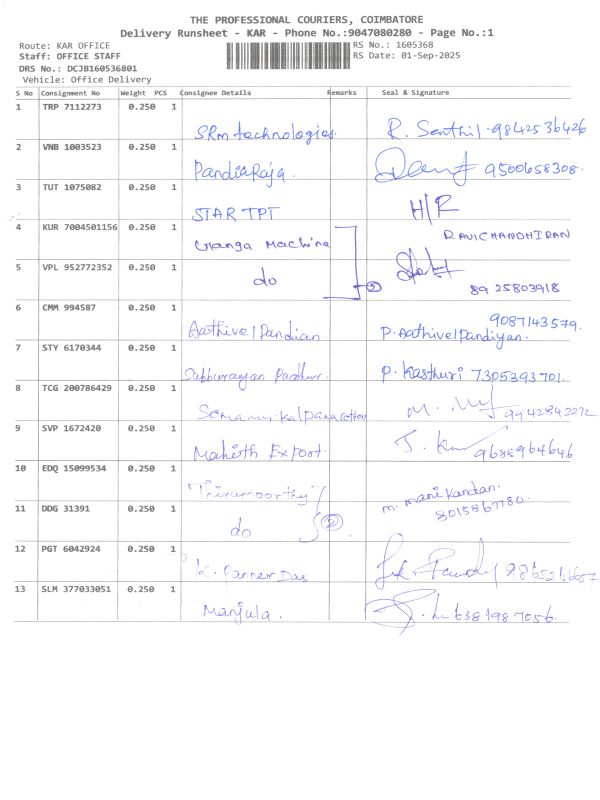 THE PROFESSIONAL COURIERS, COIMBATORE
Delivery Runsheet - KAR - Phone No.:9047080280 - Page No.:1
Route: KAR OFFICE RS No.: 1605368
Staff: OFFICE STAFF RS Date: 01-Sep-2025
DRS No.: DCJB160536801
Vehicle: Office Delivery
S No Consignment No Weight PCS Consignee Details Remarks Seal & Signature
1 TRP 7112273 0.250 1
SRm technologies. R. Senthil - 9842536426
2 VNB 1003523 0.250 1
PandiaRaja. 9500658308.
3 TUT 1075082 0.250 1
STAR TPT H/R
4 KUR 7004501156 0.250 1
Ganga Machine RAVICHANDHIRAN
5 VPL 952772352 0.250 1
do 8925803918
6 CMM 994587 0.250 1
9087143579.
Aathivel Pandian P. Aathivel Pandiyan.
7 STY 6170344 0.250 1
P. Kasthuri 7305393701.
8 TCG 200786429 0.250 1
9942842272
9 SVP 1672420 0.250 1
Mahith Export. 9688964646
10 EDQ 15099534 0.250 1
"Thirumoorthy" m. manikandan.
11 DDG 31391 0.250 1
do 2
12 PGT 6042924 0.250 1
K.
13 SLM 377033051 0.250 1
Manjula. 6381987056.